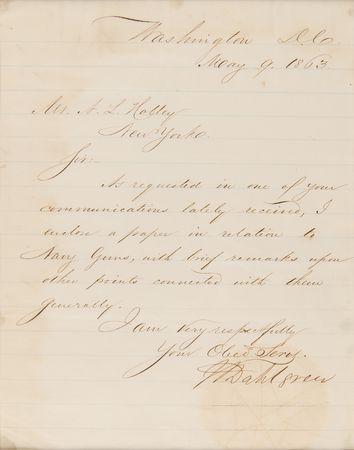 Washington D.C.
May 9. 1863
Mr. A. L. Holley
New York
Sir:-
As requested in one of your
communications lately received, I
enclose a paper in relation to
Navy Guns, with brief remarks upon
other points connected with them
generally.
I am very respectfully
Your Obed Servt.
Dahlgren